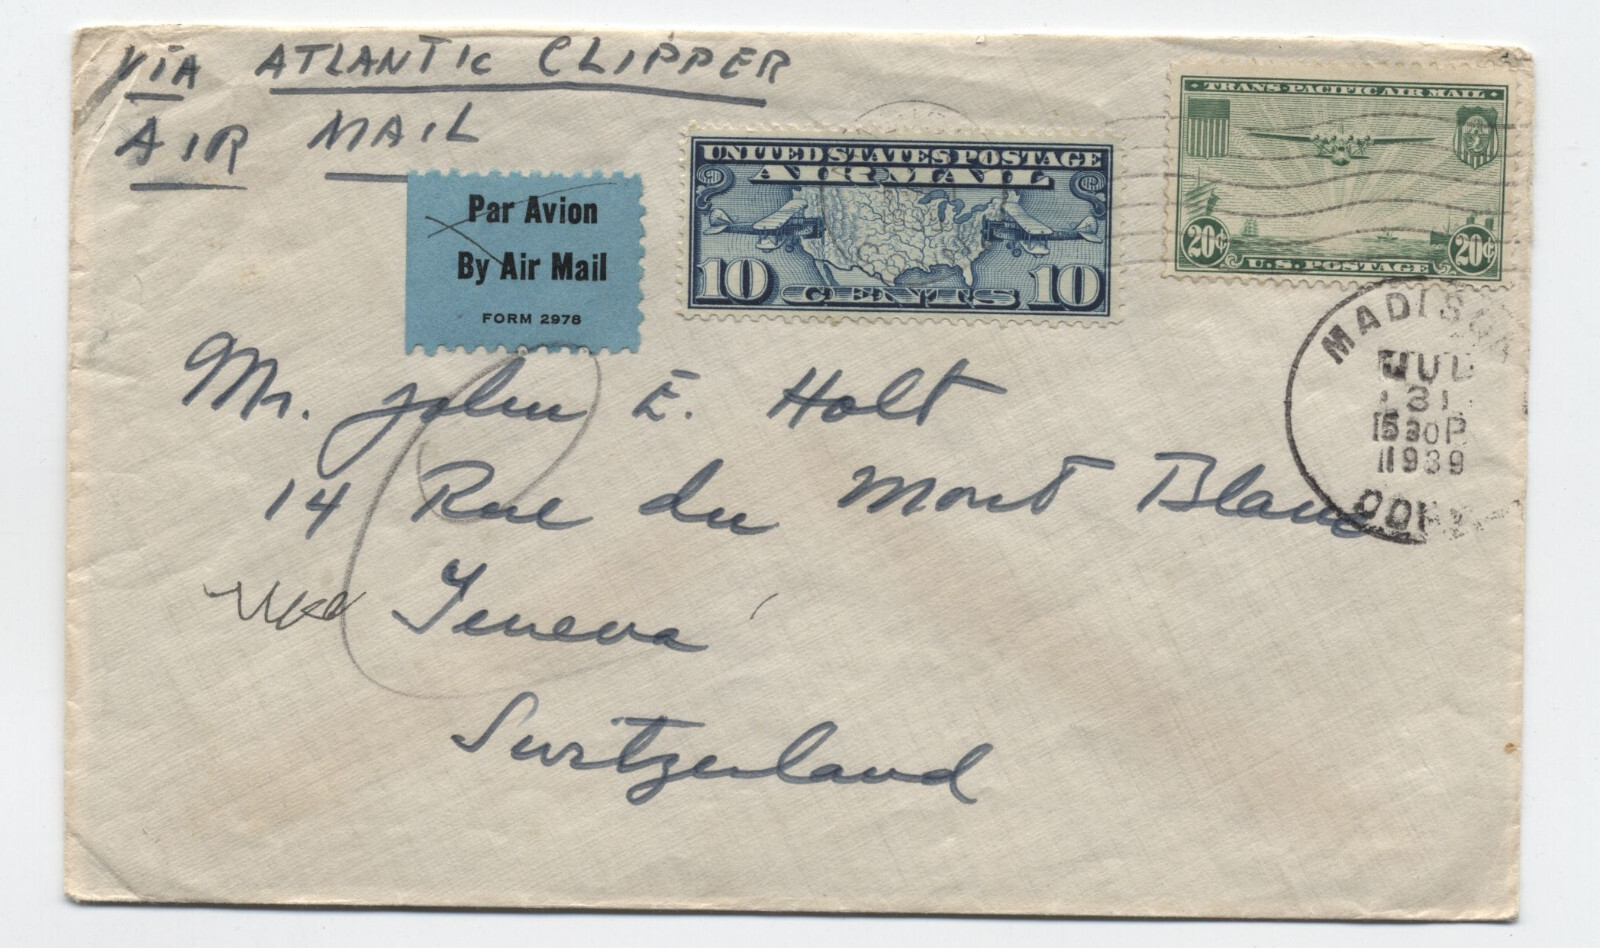 VIA ATLANTIC CLIPPER
AIR MAIL
Par Avion
By Air Mail
FORM 2978
UNITED STATES POSTAGE
AIR MAIL
10 CENTS 10
TRANS-PACIFIC AIR MAIL
20¢ 20¢
U.S. POSTAGE
MADISON
JUL
31
530P
1939
CONN
Mr. John E. Holt
14 Rue du Mont Blanc
Geneva
Switzerland